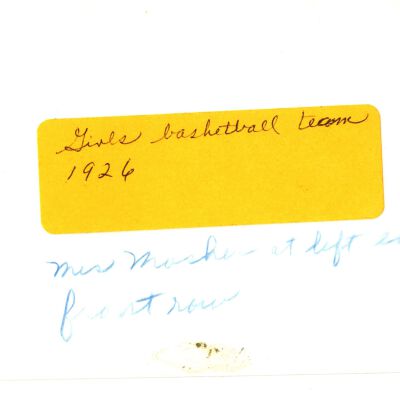 Girls basketball team
1926
Mrs Mosher at left
front row